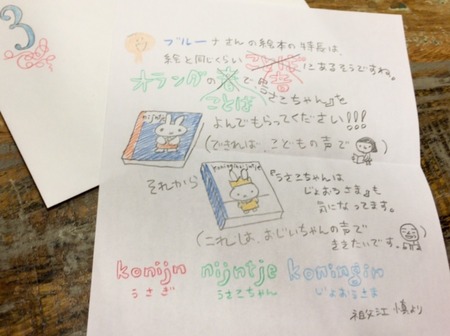 3
ブルーナさんの絵本の特長は
絵と同じくらい にあるそうですね。
オランダの 音
ことば で『うさこちゃん』を
よんでもらってください!!!
nijntje
(できれば、こどもの声で)
それから
koningin nijntje
『うさこちゃんは
じょおうさま』も
気になってます。
(これは、おじいちゃんの声で
ききたいです。)
konijn nijntje koningin
うさぎ うさこちゃん じょおうさま
祖父江 慎より